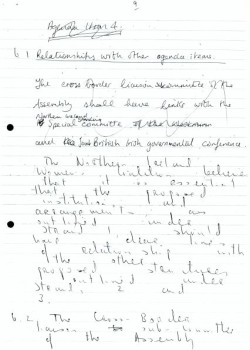 9
Agenda Item 4
6.1 Relationships with other agenda items.
The cross Border liaison subcommittee of the
Assembly shall have links with the
Northern Ireland
Special committee of the
and the Joint British Irish governmental conference.
The Northern Ireland
Women's Coalition believe
that it is essential
that the proposed
institutional and
arrangements as
outlined under
strand 1, should
have clear lines
of relationship with
the other
proposed structures
outlined under
strands 2 and
3.
6.2 The Cross-Border
liaison sub-committee
of the Assembly